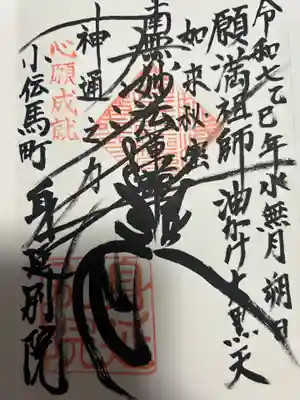 令和七乙巳年水無月朔日
願満祖師油かけ大黒天
如来秘密
南無妙法蓮華経
神通之力
心願成就
小伝馬町 身延別院